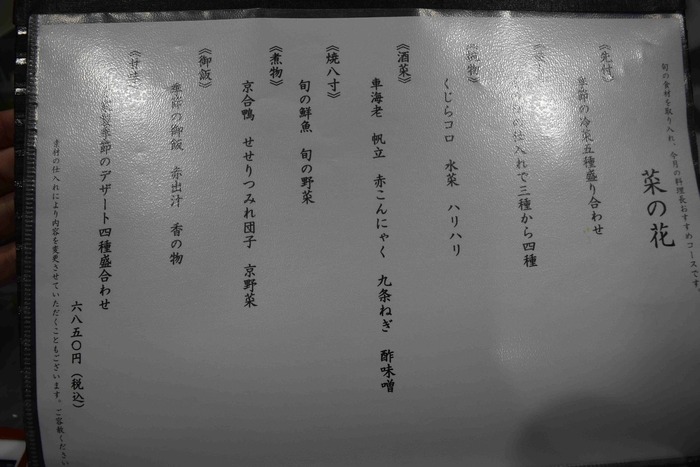 旬の食材を取り入れ、今月の料理長おすすめコースです。
菜の花
《先付》
季節の冷菜五種盛り合わせ
仕入れで三種から四種
くじらコロ 水菜 ハリハリ
《酒菜》
車海老 帆立 赤こんにゃく 九条ねぎ 酢味噌
《焼八寸》
旬の鮮魚 旬の野菜
《煮物》
京合鴨 せせりつみれ団子 京野菜
《御飯》
季節の御飯 赤出汁 香の物
季節のデザート四種盛合わせ
六八五〇円（税込）
素材の仕入れにより内容を変更させていただくこともございます。ご容赦ください